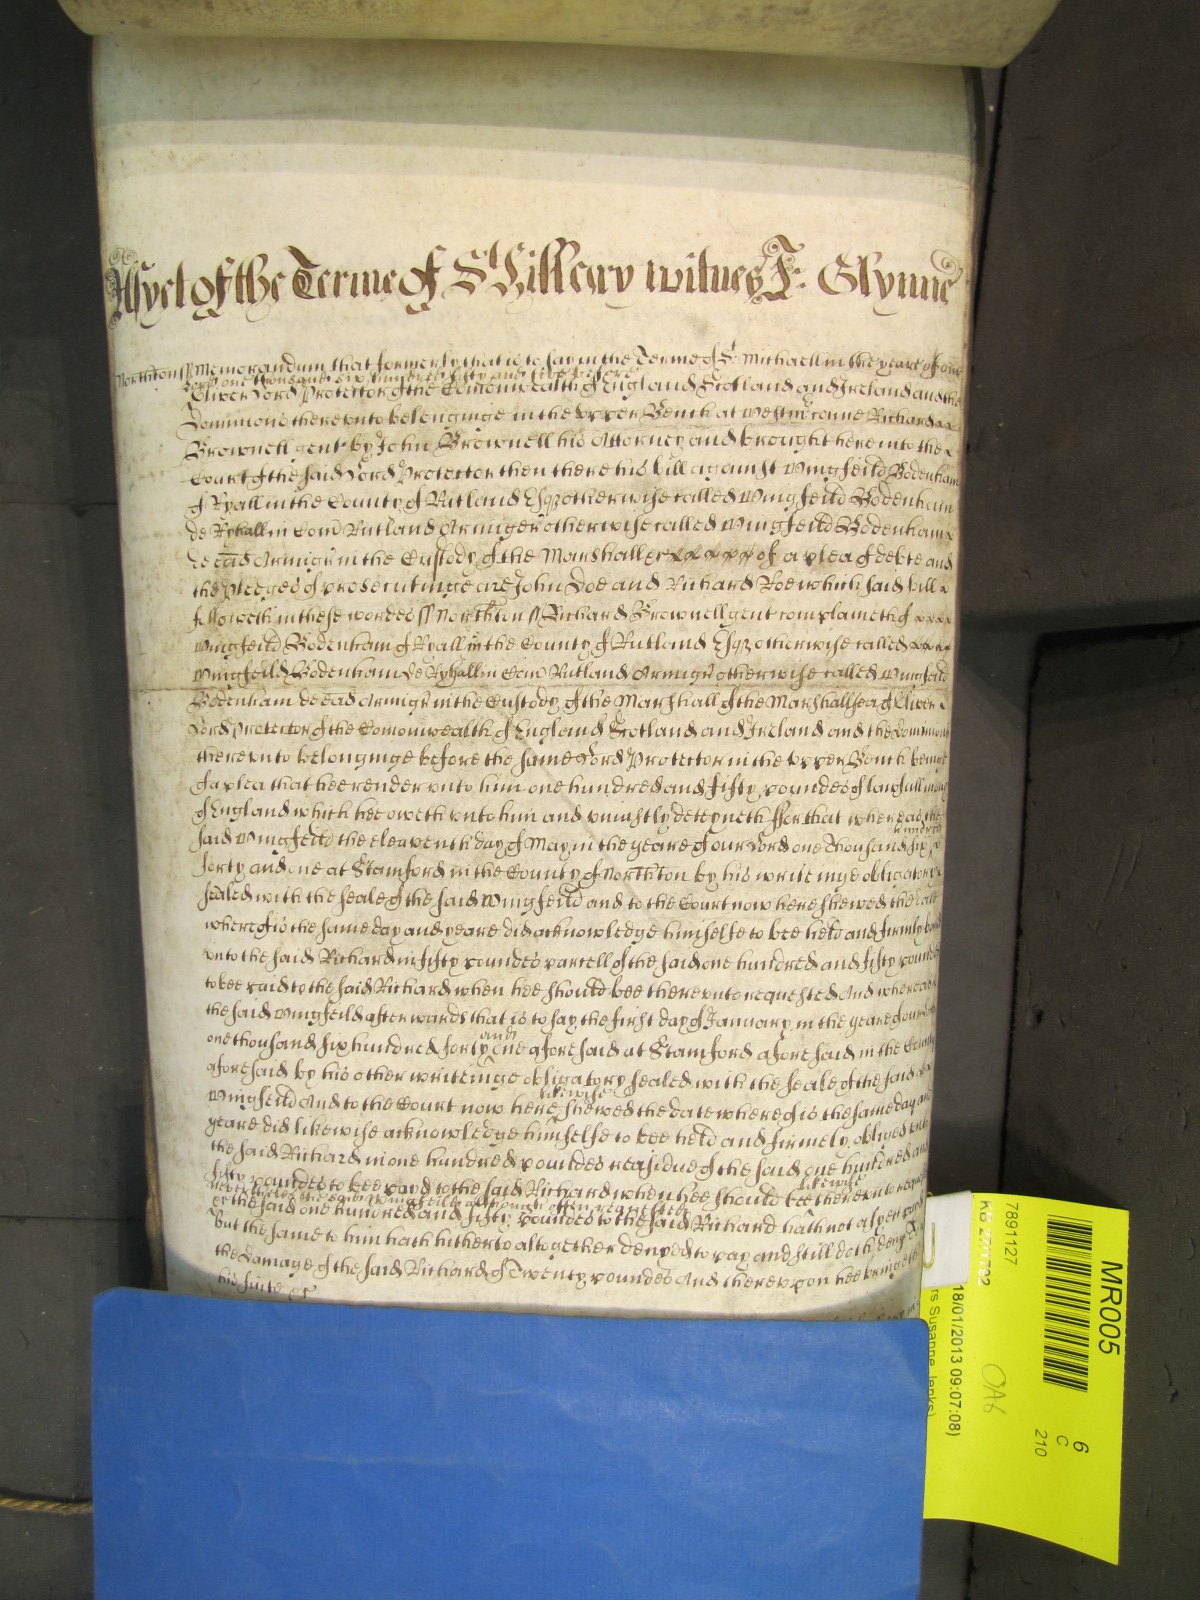 As yet of the Terme of St Hillary witnes J: Glynne
Northton ss Memorandum that formerly that is to say in the Terme of St Michaell in the yeare of our
Lord one thousand six hundred fifty and five before
Oliver Lord Protector of the Comonwealth of England Scotland and Ireland and the
Dominions thereunto belonginge in the upper Bench at Westmr came Richard
Brownell gent by John Brownell his Attorney and brought here into the
Court of the said Lord Protector then there his bill against Wingfeild Bodenham
of Ryall in the County of Rutland Esqr otherwise called Wingfeild Bodenham
de Ryhall in Com Rutland Armiger otherwise called Wingfeild Bodenham
de ead Armigr in the Custody of the Marshall &c of a plea of debte and
the Pledges of prosecutinge are John Doe and Richard Roe which said bill
followeth in these wordes ss Northton ss Richard Brownell gent complaineth of
Wingfeild Bodenham of Ryall in the County of Rutland Esqr otherwise called
Wingfeild Bodenham de Ryhall in Com Rutland Armigr otherwise called Wingfeild
Bodenham de ead Armigr in the Custody of the Marshall of the Marshallsea of Oliver
Lord Protector of the Comonwealth of England Scotland and Ireland and the Dominions
thereunto belonginge before the same Lord Protector in the upper Bench beinge
of a plea that hee render unto him one hundred and fifty poundes of lawfull money
of England which hee oweth unto him and uniustly deteyneth ffor that whereas the
said Wingfeild the eleaventh day of May in the yeare of our Lord one thousand six hundred
forty and one at Stamford in the County of Northton by his writeinge obligatory
sealed with the seale of the said Wingfeild and to the Court now here shewed the date
whereof is the same day and yeare did acknowledge himselfe to bee held and firmly bound
unto the said Richard in fifty poundes parcell of the said one hundred and fifty poundes
to bee paid to the said Richard when hee should bee thereunto requested And whereas
the said Wingfeild afterwards that is to say the first day of January in the yeare of our Lord
one thousand six hundred forty and one aforesaid at Stamford aforesaid in the County
aforesaid by his other writeinge obligatory sealed with the seale of the said
Wingfeild And to the Court now here likewise shewed the date whereof is the same day and
yeare did likewise acknowledge himselfe to bee held and firmely obliged unto
the said Richard in one hundred poundes residue of the said one hundred and
fifty poundes to bee payd to the said Richard when hee should likewise bee thereunto requested
neverthelesse the said Wingfeild although often requested
the said one hundred and fifty poundes to the said Richard hath not as yett payd
but the same to him hath hitherto altogether denyed to pay and still doth deny to
the damage of the said Richard of Twenty poundes And thereupon hee bringeth
his suite &c
MR005
7891127
KB 27/1782
18/01/2013 09:07:08)
rs Susanne Jenks)
OA6
6
C
210